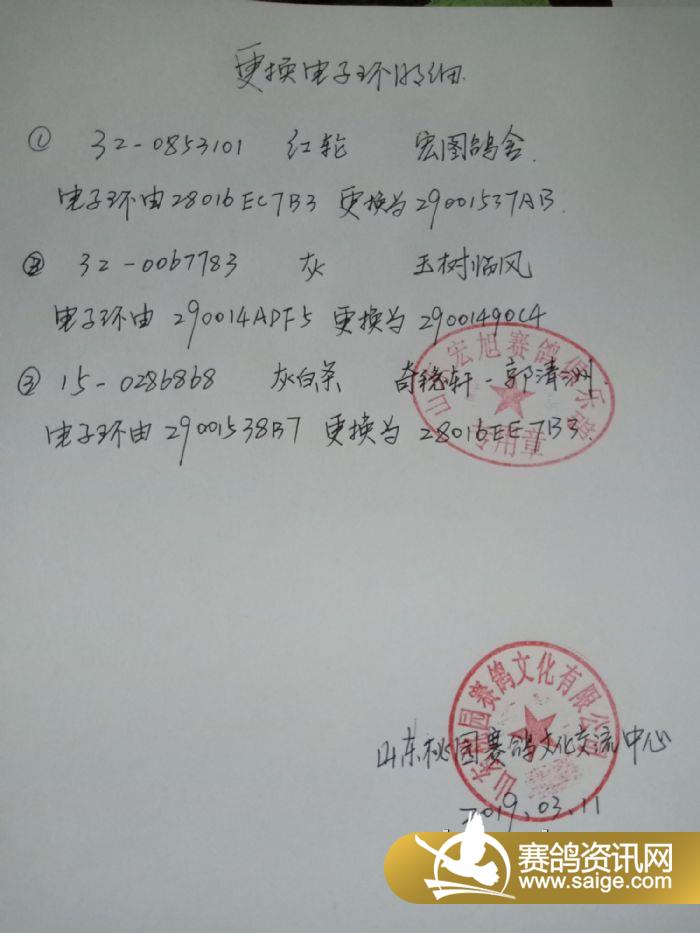 更换电子环明细.
① 32-0853101 红轮 宏图鸽舍.
电子环由28016EC7B3 更换为29001537AB.
② 32-0067783 灰 玉树临风
电子环由 290014ADF5 更换为 29001490C4
③ 15-0286868 灰白条 奇绕轩-郭清洲.
电子环由 29001538B7 更换为 28016EE7B3.
山东宏旭赛鸽俱乐部
专用章
山东桃园赛鸽文化有限公司
山东桃园赛鸽文化交流中心
2019.03.11
赛鸽资讯网
www.saige.com